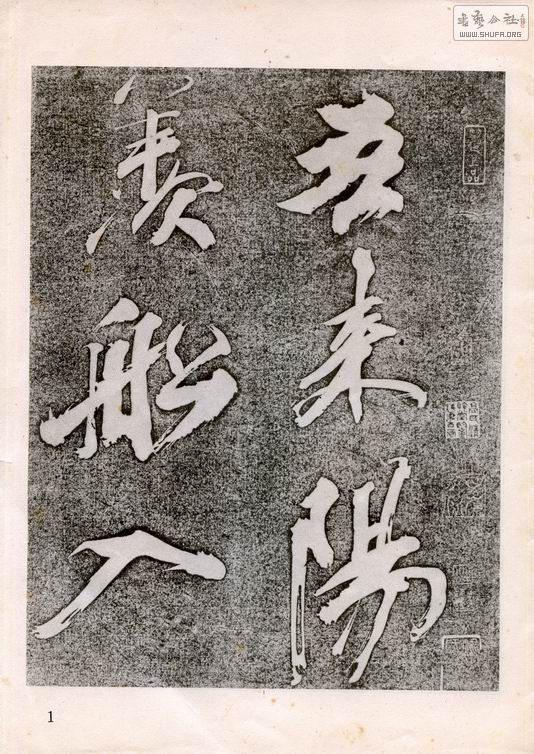 書藝公社
WWW.SHUFA.ORG
吾来陽
羨船入
1